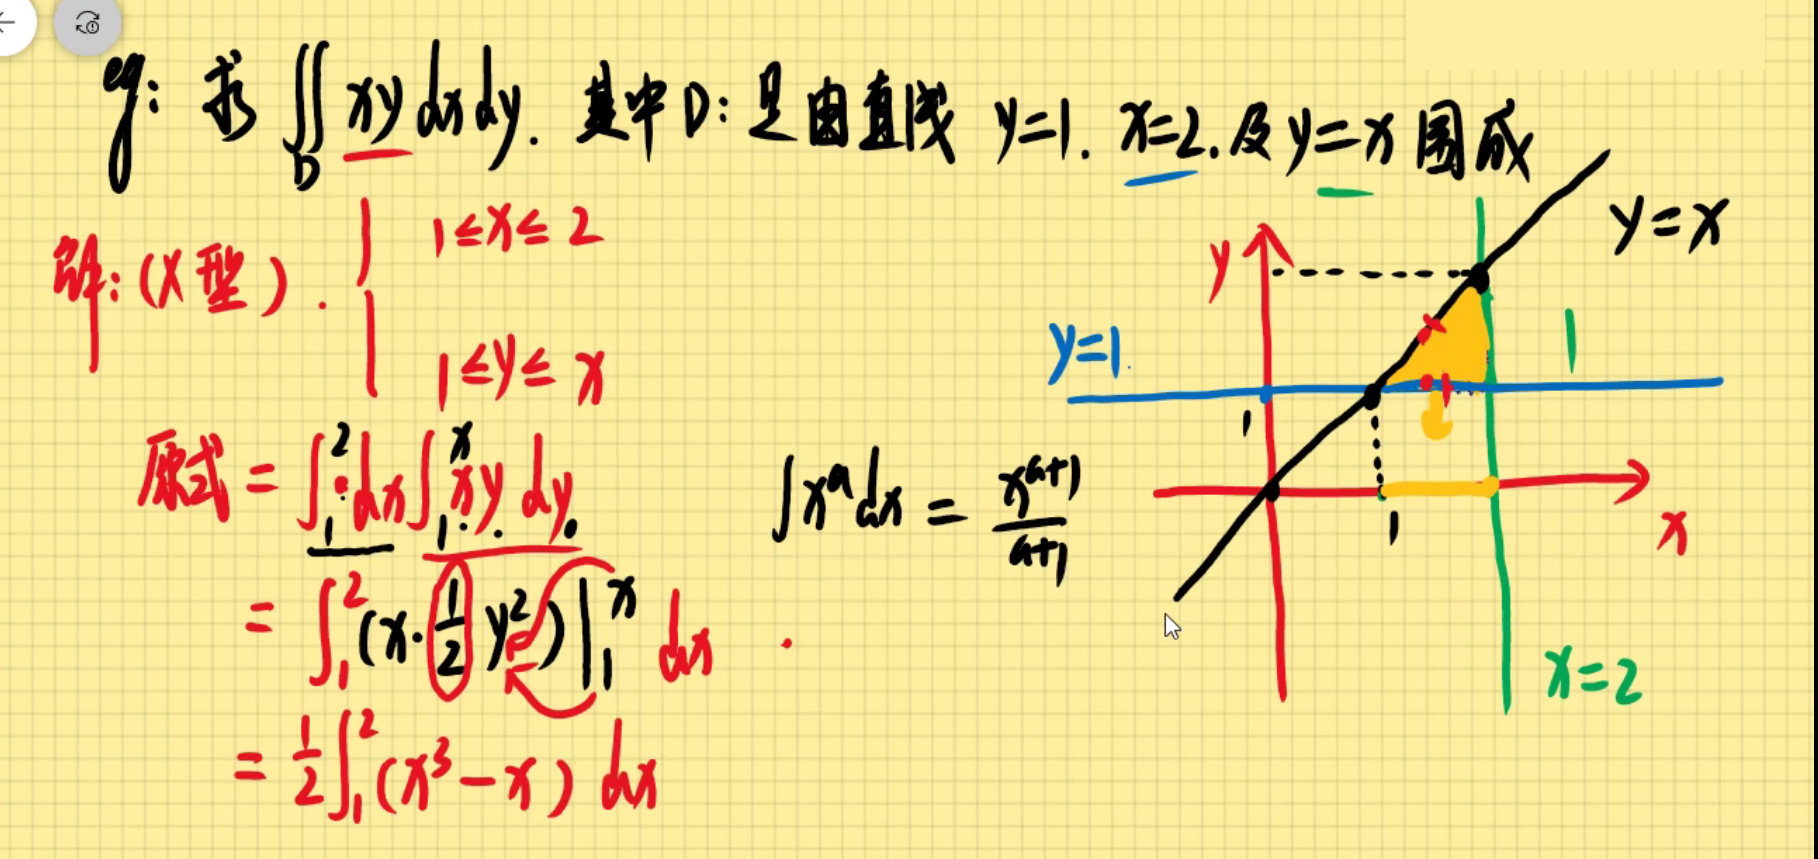 eg: 求 ∬_D xy dx dy. 其中 D: 是由直线 y=1. x=2. 及 y=x 围成
解: (X型). 1≤x≤2
1≤y≤x
原式 = ∫_1^2 dx ∫_1^x xy dy.
= ∫_1^2 (x·1/2 y^2)|_1^x dx
= 1/2 ∫_1^2 (x^3 - x) dx
∫x^a dx = x^{a+1}/(a+1)
y=x
y
y=1.
1
1
1
x
x=2